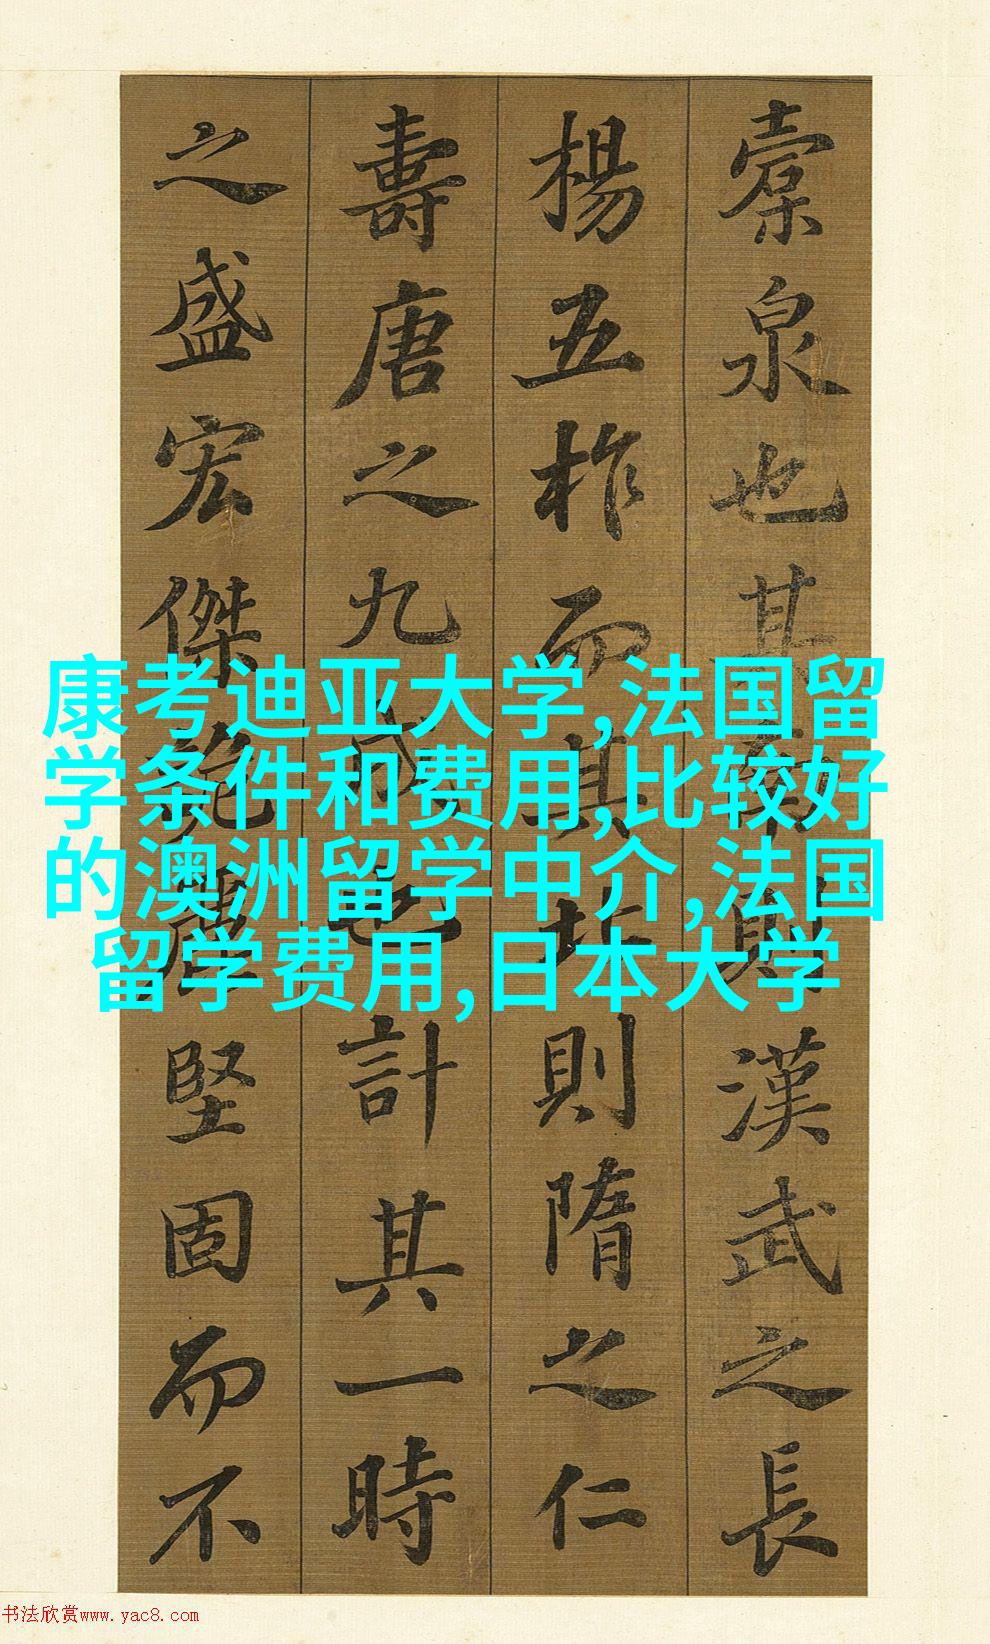 橐泉也其南則漢武之長
楊五柞而其北則隋之仁
壽唐之九成也計其一時
之盛宏傑詭麗堅固而不
康考迪亚大学,法国留
学条件和费用,比较好
的澳洲留学中介,法国
留学费用,日本大学
书法欣赏www.yac8.com